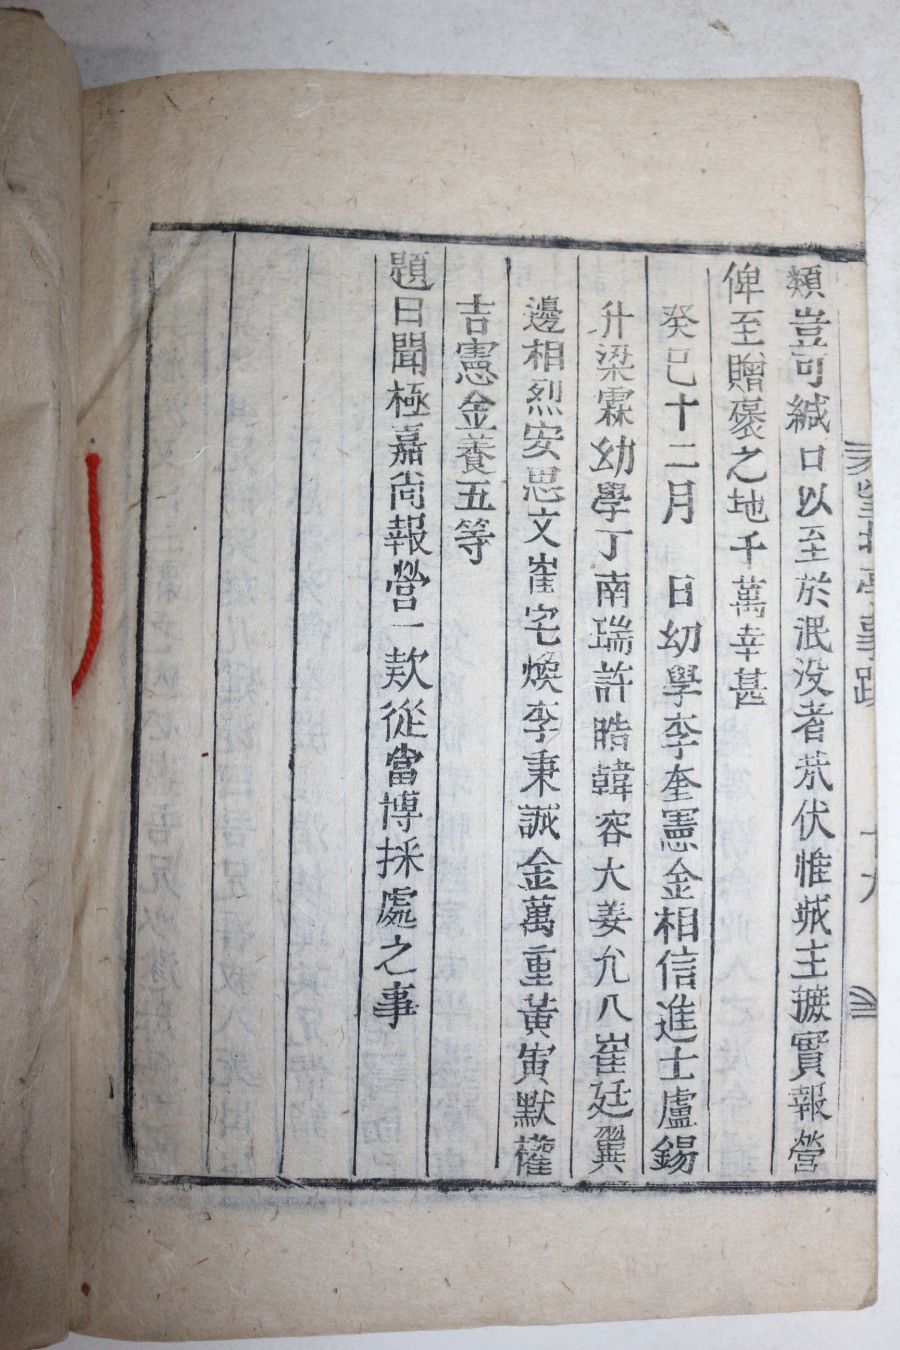 類豈可緘口以至於泯没者㢤伏惟城主㩀實報營
俾至贈褒之地千萬幸甚
癸巳十二月 日幼學李奎憲金相信進士盧錫
升梁霖幼學丁南瑞許晧韓容大姜允八崔廷翼
邊相烈安思文崔宅煥李秉誠金萬重黃寅默權
吉憲金養五等
題曰聞極嘉尙報營一欵從當博採處之事